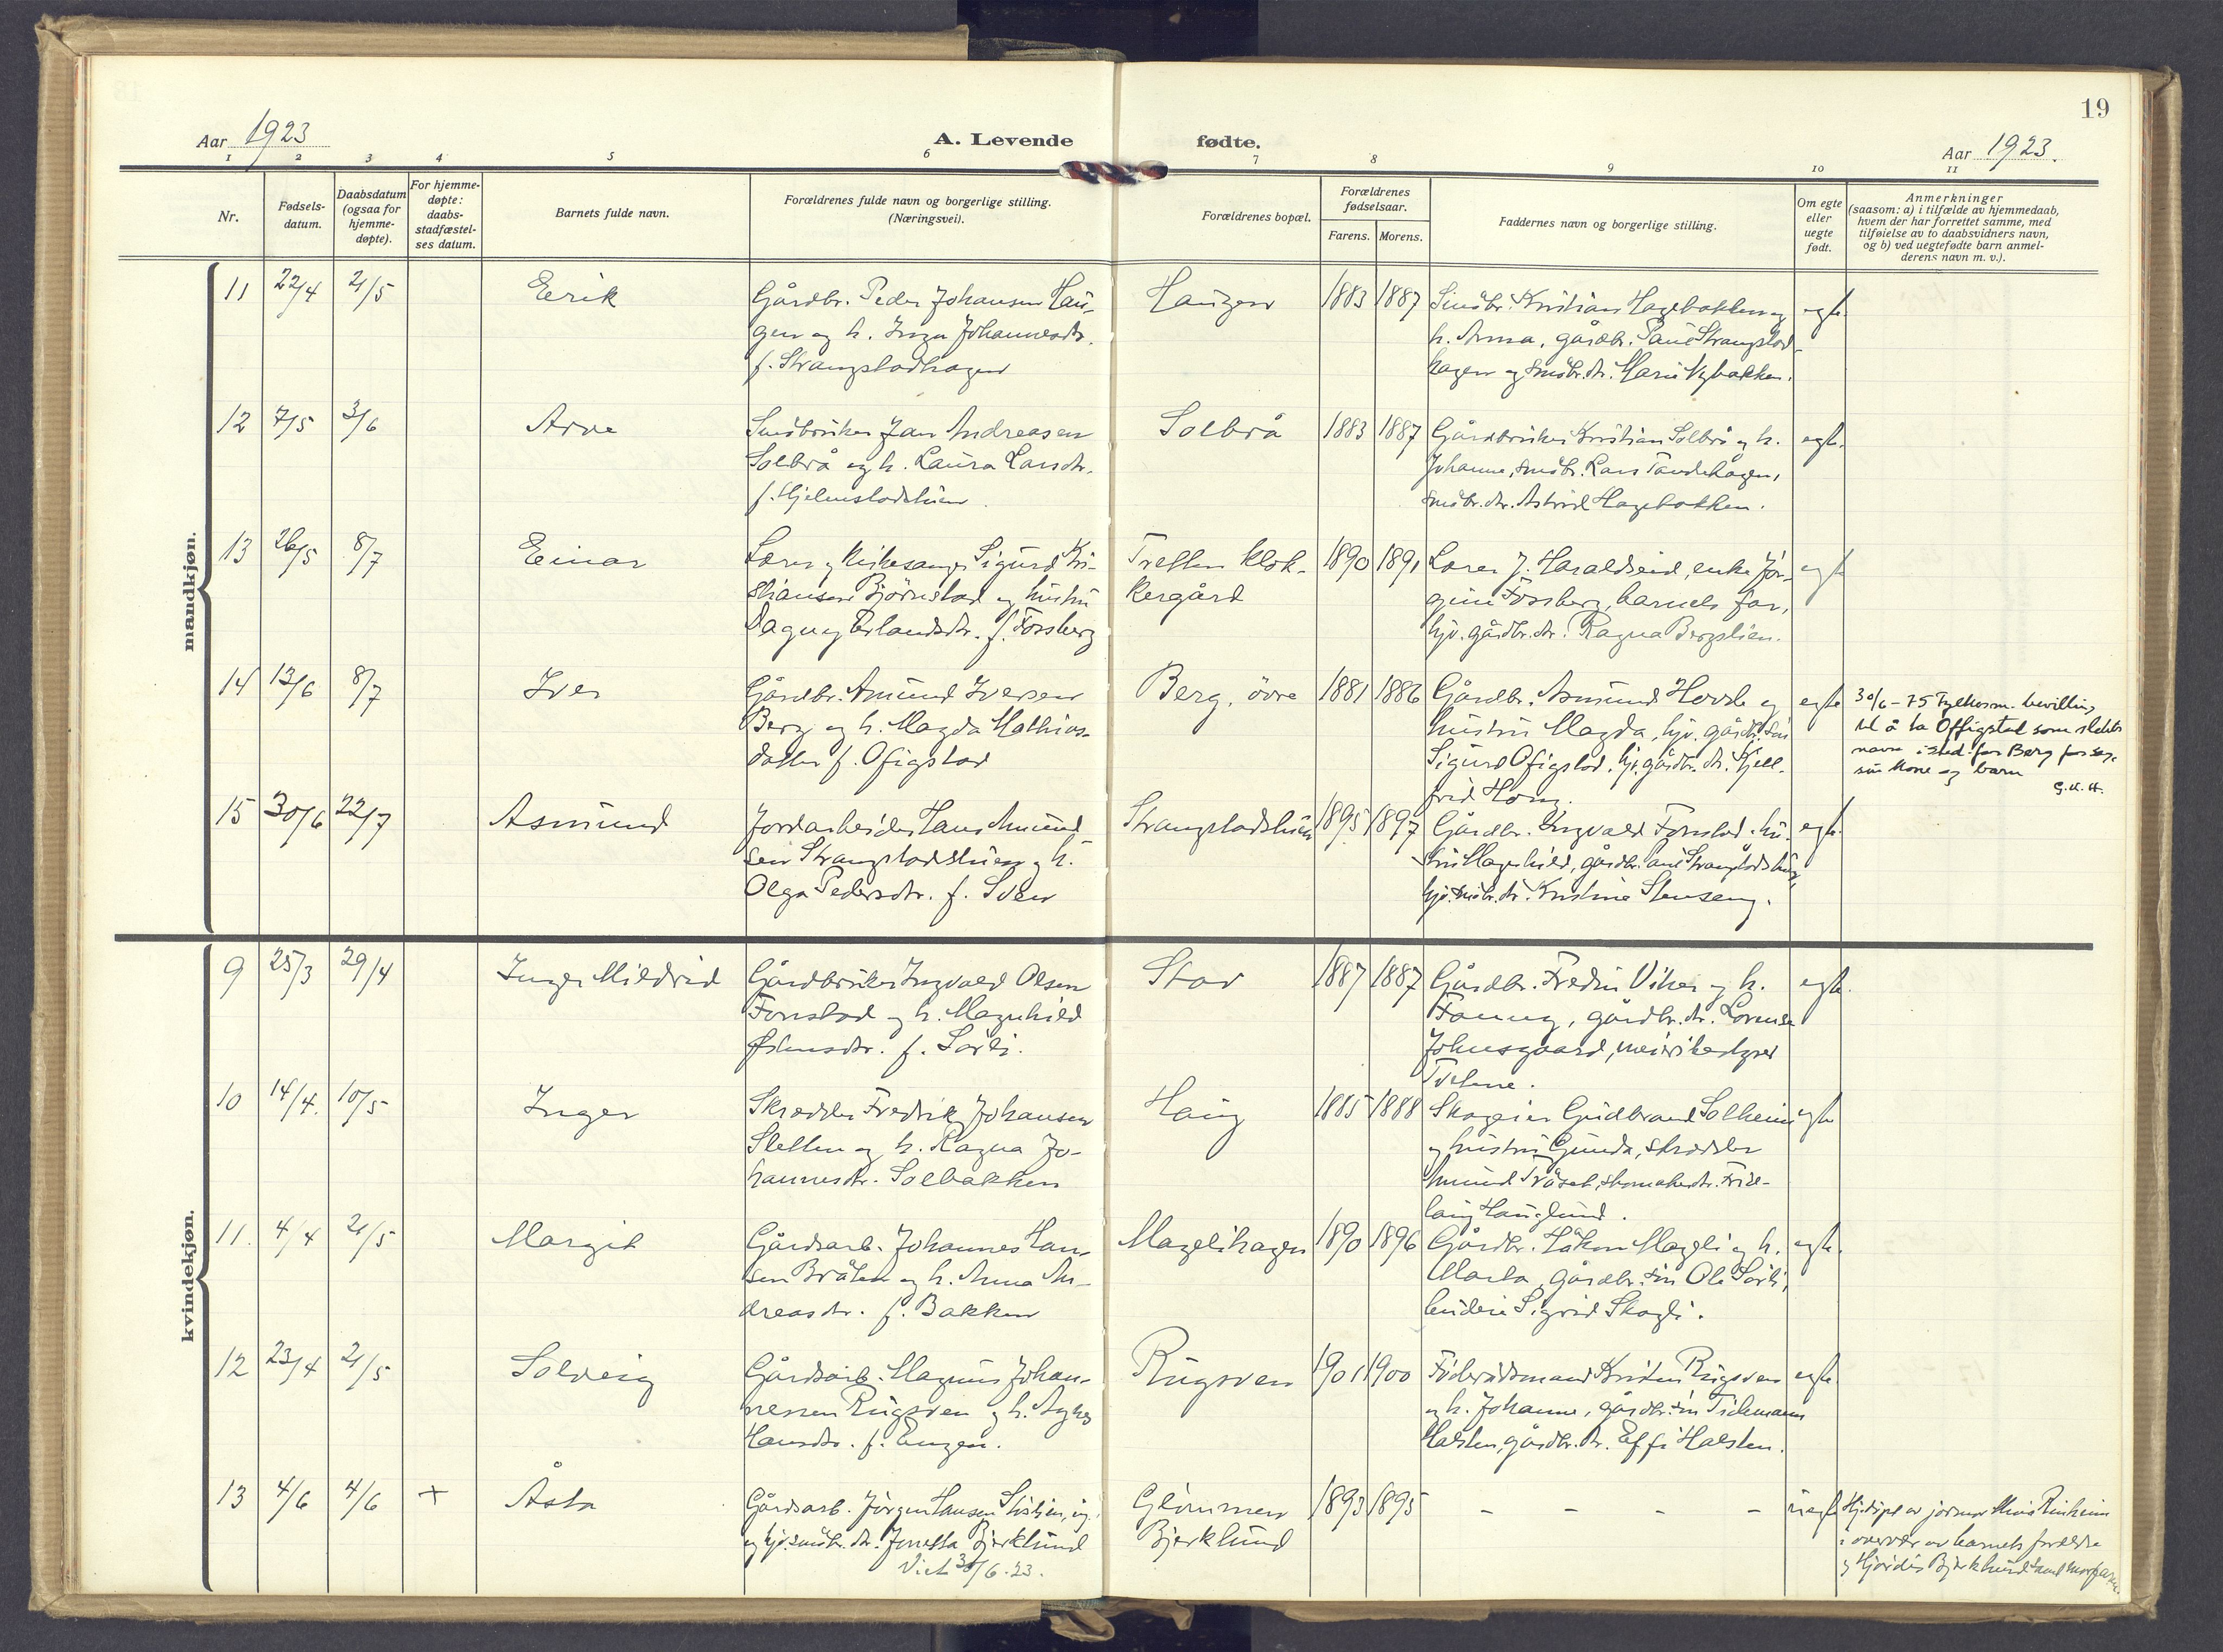 19
Aar 1923
A. Levende fødte.
Aar 1923.
1 2 3 4 5 6 7 8 9 10 11
Nr.
Fødsels-
datum.
Daabsdatum
(ogsaa for
hjemme-
døpte).
For hjemme-
døpte:
daabs-
stadfæstel-
ses datum.
Barnets fulde navn.
Forældrenes fulde navn og borgerlige stilling.
(Næringsvei).
Forældrenes bopæl.
Forældrenes
fødselsaar.
Farens. Morens.
Faddernes navn og borgerlige stilling.
Om egte
eller
uegte
født.
Anmerkninger
(saasom: a) i tilfælde av hjemmedaab,
hvem der har forrettet samme, med
tilføielse av to daabsvidners navn,
og b) ved uegtefødte barn anmel-
derens navn m. v.).
mandkjøn.
11 22/4 21/5 Eerik
Gårdbr. Peder Johansen Hau-
gen og h. Inga Johannesdr.
f. Strangstadhagen
Haugen 1883 1887
Småbr. Kristian Hagebakken og
h. Anna, gårdbr. Paul Strangstad-
hagen og småbr.dr. Marie Nybakken.
egte.
12 7/5 3/6 Arve
Småbruker Jan Andreasen
Solbrå og h. Laura Larsdr.
f. Hjelmstadstuen.
Solbrå 1883 1887
Gårdbruker Kristian Solbrå og h.
Johanne, småbr. Lars Tandehagen,
småbr.dr. Astrid Hagebakken.
egte.
13 26/5 8/7 Einar
Lærer og kirkesanger Sigurd Kri-
stiansen Bjørnstad og hustru
Dagny Erlandsdr. f. Forsberg
Tretten klok-
kergård
1890 1891
Lærer J. Haraldseid, enke Jør-
gine Forsberg, barnets far,
hjv. gårdbr.dr. Ragna Bergslien.
egte
14 13/6 8/7 Iver
Gårdbr. Amund Iversen
Berg og h. Magda Mathias-
datter f. Ofigstad
Berg, övre 1881 1886
Gårdbr. Asmund Hovde og
hustru Magda, hjv. gårdbr. søn
Sigurd Ofigstad, hjv. gårdbr. dr. Kjell-
frid Hong.
egte
30/6-75 Fylkesm. bevilling
til å ta Offigstad som slekts
navn isted. for Berg for seg,
sin kone og barn
G.K.H.
15 30/6 22/7 Asmund
Jordarbeider Hans Amund-
sen Strangstadstuen og h.
Olga Pedersdr. f. Sveen
Strangstadstuen 1895 1897
Gårdbr. Ingvald Fonstad, hu-
stru Magnhild, gårdbr. Strangstadstuen,
hjv. småbr. dr. Kristine Stenseng.
egte.
kvindekjøn.
9 25/3 29/4 Inger Mildrid
Gårdbruker Ingvald Olsen
Fonstad og h. Magnhild
f. Sørli.
Stav 1887 1887
Gårdbr. Fredrik Viker og h.
Fanny, gårdbr. dr. Lovise
Johnsgaard, meieribestyrer
egte.
10 14/4. 10/5 Inger
Skrædder Fredrik Johansen
Sletten og h. Ragna Jo-
hannesdr. Solbakken
Haug 1885 1888
Skogeier Gudbrand Solheim
og hustru Gunda, skrædder
Amund skomakerdr. Frid-
laug Hauglund.
egte
11. 4/4 21/5 Margit
Gårdsarb. Johannes Han-
sen Bråten og h. Anna An-
dreasdr. f. Bakken
Magelihagen 1890 1896
Gårdbr. Håkon Mageli og h.
Marta, gårdbr. søn Ole Sørli,
budeie Sigrid Skogli.
egte.
12 23/4 21/5 Solveig
Gårdsarb. Magnus Johan-
nessen Rugsveen og h. Agnes
Hansdr. f. Engen.
Rugsveen 1901 1900
Föderådsmand Kristen Rugsveen
og h. Johanne, gårdbr. søn Tidemann
Halsten, gårdbr. dr. Effi Halsten.
egte.
13 4/6 4/6 + Åsta
Gårdsarb. Jörgen Hansen
og hjv. småbr. dr. Jonetta Bjerklund
Viet 30/6.23.
Glommen
Bjerklund
1893 1895
- - - -
uegte
Hj.døpt av jormor Rinheim
i overvær av barnets forældre
og Hjørdis Bjerklund samt morfaren.